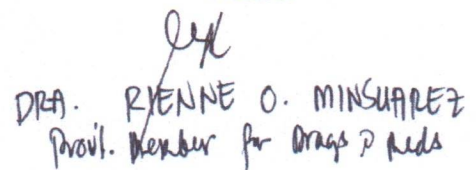 DRA. RYENNE O. MINSUAREZ
Provil. Member for Drugs & Meds